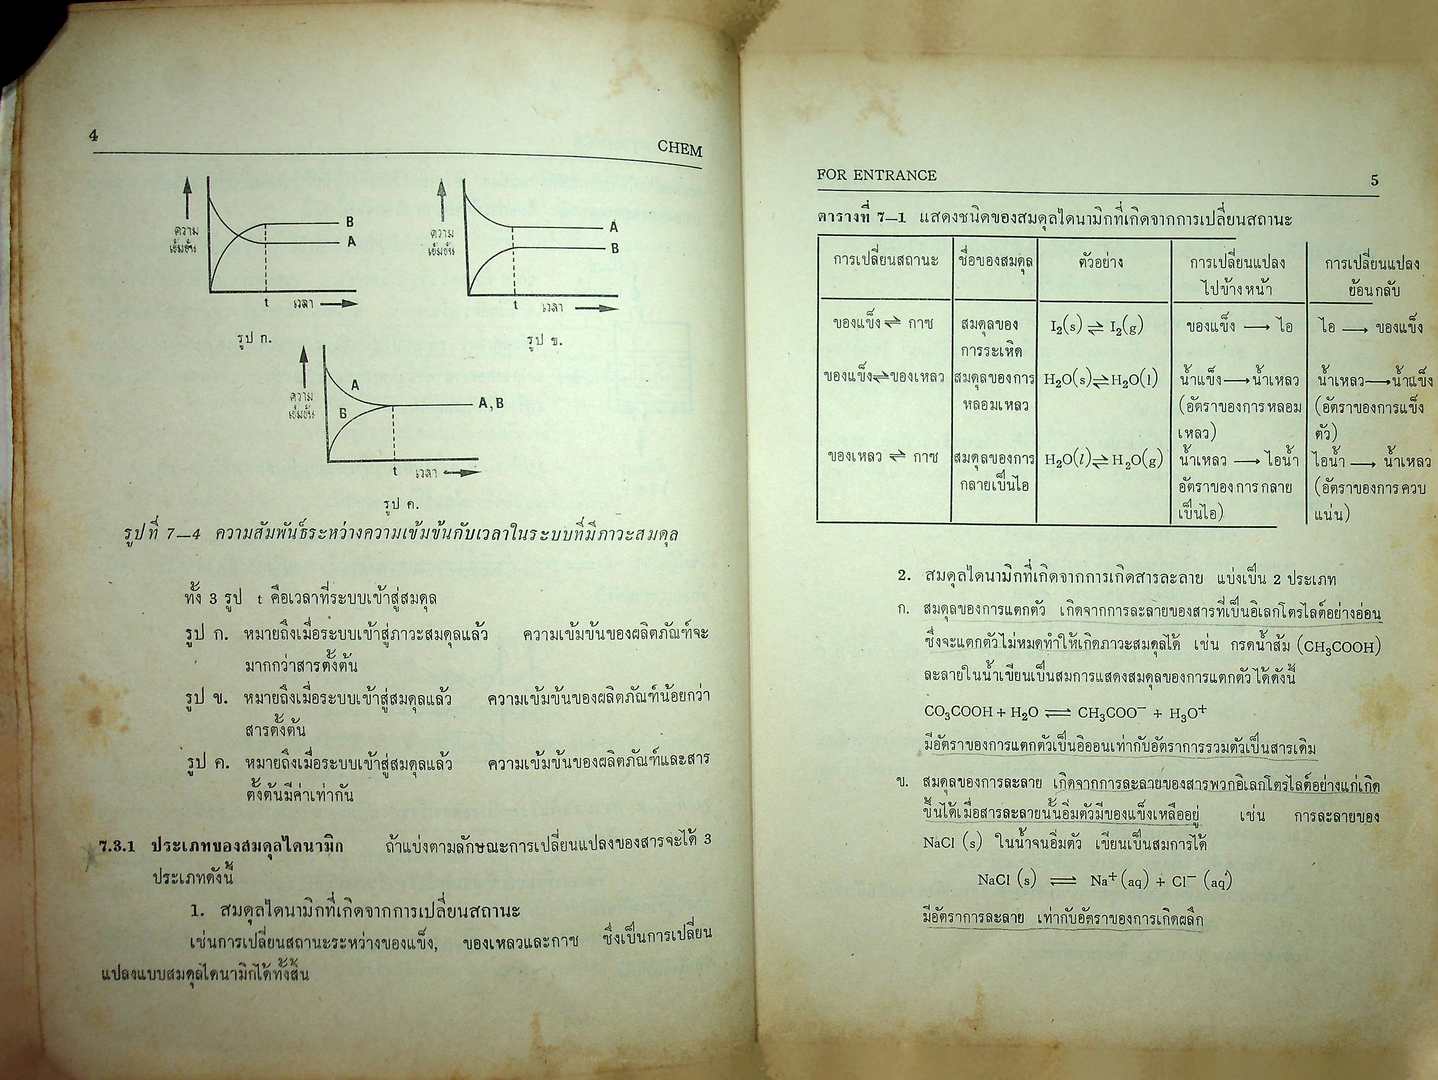 4
CHEM
ความ
เข้มข้น
B
A
t
เวลา
รูป ก.
ความ
เข้มข้น
A
B
t
เวลา
รูป ข.
ความ
เข้มข้น
A
Б
A, B
t
เวลา
รูป ค.
รูปที่ 7—4 ความสัมพันธ์ระหว่างความเข้มข้นกับเวลาในระบบที่มีภาวะสมดุล
ทั้ง 3 รูป t คือเวลาที่ระบบเข้าสู่สมดุล
รูป ก. หมายถึงเมื่อระบบเข้าสู่ภาวะสมดุลแล้ว ความเข้มข้นของผลิตภัณฑ์จะ
มากกว่าสารตั้งต้น
รูป ข. หมายถึงเมื่อระบบเข้าสู่สมดุลแล้ว ความเข้มข้นของผลิตภัณฑ์น้อยกว่า
สารตั้งต้น
รูป ค. หมายถึงเมื่อระบบเข้าสู่สมดุลแล้ว ความเข้มข้นของผลิตภัณฑ์และสาร
ตั้งต้นมีค่าเท่ากัน
7.3.1 ประเภทของสมดุลไดนามิก ถ้าแบ่งตามลักษณะการเปลี่ยนแปลงของสารจะได้ 3
ประเภทดังนี้
1. สมดุลไดนามิกที่เกิดจากการเปลี่ยนสถานะ
เช่นการเปลี่ยนสถานะระหว่างของแข็ง, ของเหลวและกาซ ซึ่งเป็นการเปลี่ยน
แปลงแบบสมดุลไดนามิกได้ทั้งสิ้น
FOR ENTRANCE
5
ตารางที่ 7—1 แสดงชนิดของสมดุลไดนามิกที่เกิดจากการเปลี่ยนสถานะ
การเปลี่ยนสถานะ ชื่อของสมดุล ตัวอย่าง การเปลี่ยนแปลง การเปลี่ยนแปลง
ไปข้างหน้า ย้อนกลับ
ของแข็ง ⇌ กาซ สมดุลของ I₂(s) ⇌ I₂(g) ของแข็ง → ไอ ไอ → ของแข็ง
การระเหิด
ของแข็ง⇌ของเหลว สมดุลของการ H₂O(s)⇌H₂O(l) น้ำแข็ง→น้ำเหลว น้ำเหลว→น้ำแข็ง
หลอมเหลว (อัตราของการหลอม (อัตราของการแข็ง
เหลว) ตัว)
ของเหลว ⇌ กาซ สมดุลของการ H₂O(l)⇌H₂O(g) น้ำเหลว → ไอน้ำ ไอน้ำ → น้ำเหลว
กลายเป็นไอ อัตราของการกลาย (อัตราของการควบ
เป็นไอ) แน่น)
2. สมดุลไดนามิกที่เกิดจากการเกิดสารละลาย แบ่งเป็น 2 ประเภท
ก. สมดุลของการแตกตัว เกิดจากการละลายของสารที่เป็นอิเลกโตรไลต์อย่างอ่อน
ซึ่งจะแตกตัวไม่หมดทำให้เกิดภาวะสมดุลได้ เช่น กรดน้ำส้ม (CH₃COOH)
ละลายในน้ำเขียนเป็นสมการแสดงสมดุลของการแตกตัวได้ดังนี้
CO₃COOH + H₂O ⇌ CH₃COO⁻ + H₃O⁺
มีอัตราของการแตกตัวเป็นอิออนเท่ากับอัตราการรวมตัวเป็นสารเดิม
ข. สมดุลของการละลาย เกิดจากการละลายของสารพวกอิเลกโตรไลต์อย่างแก่เกิด
ขึ้นได้เมื่อสารละลายนั้นอิ่มตัวมีของแข็งเหลืออยู่ เช่น การละลายของ
NaCl (s) ในน้ำจนอิ่มตัว เขียนเป็นสมการได้
NaCl (s) ⇌ Na⁺ (aq) + Cl⁻ (aq)
มีอัตราการละลาย เท่ากับอัตราของการเกิดผลึก